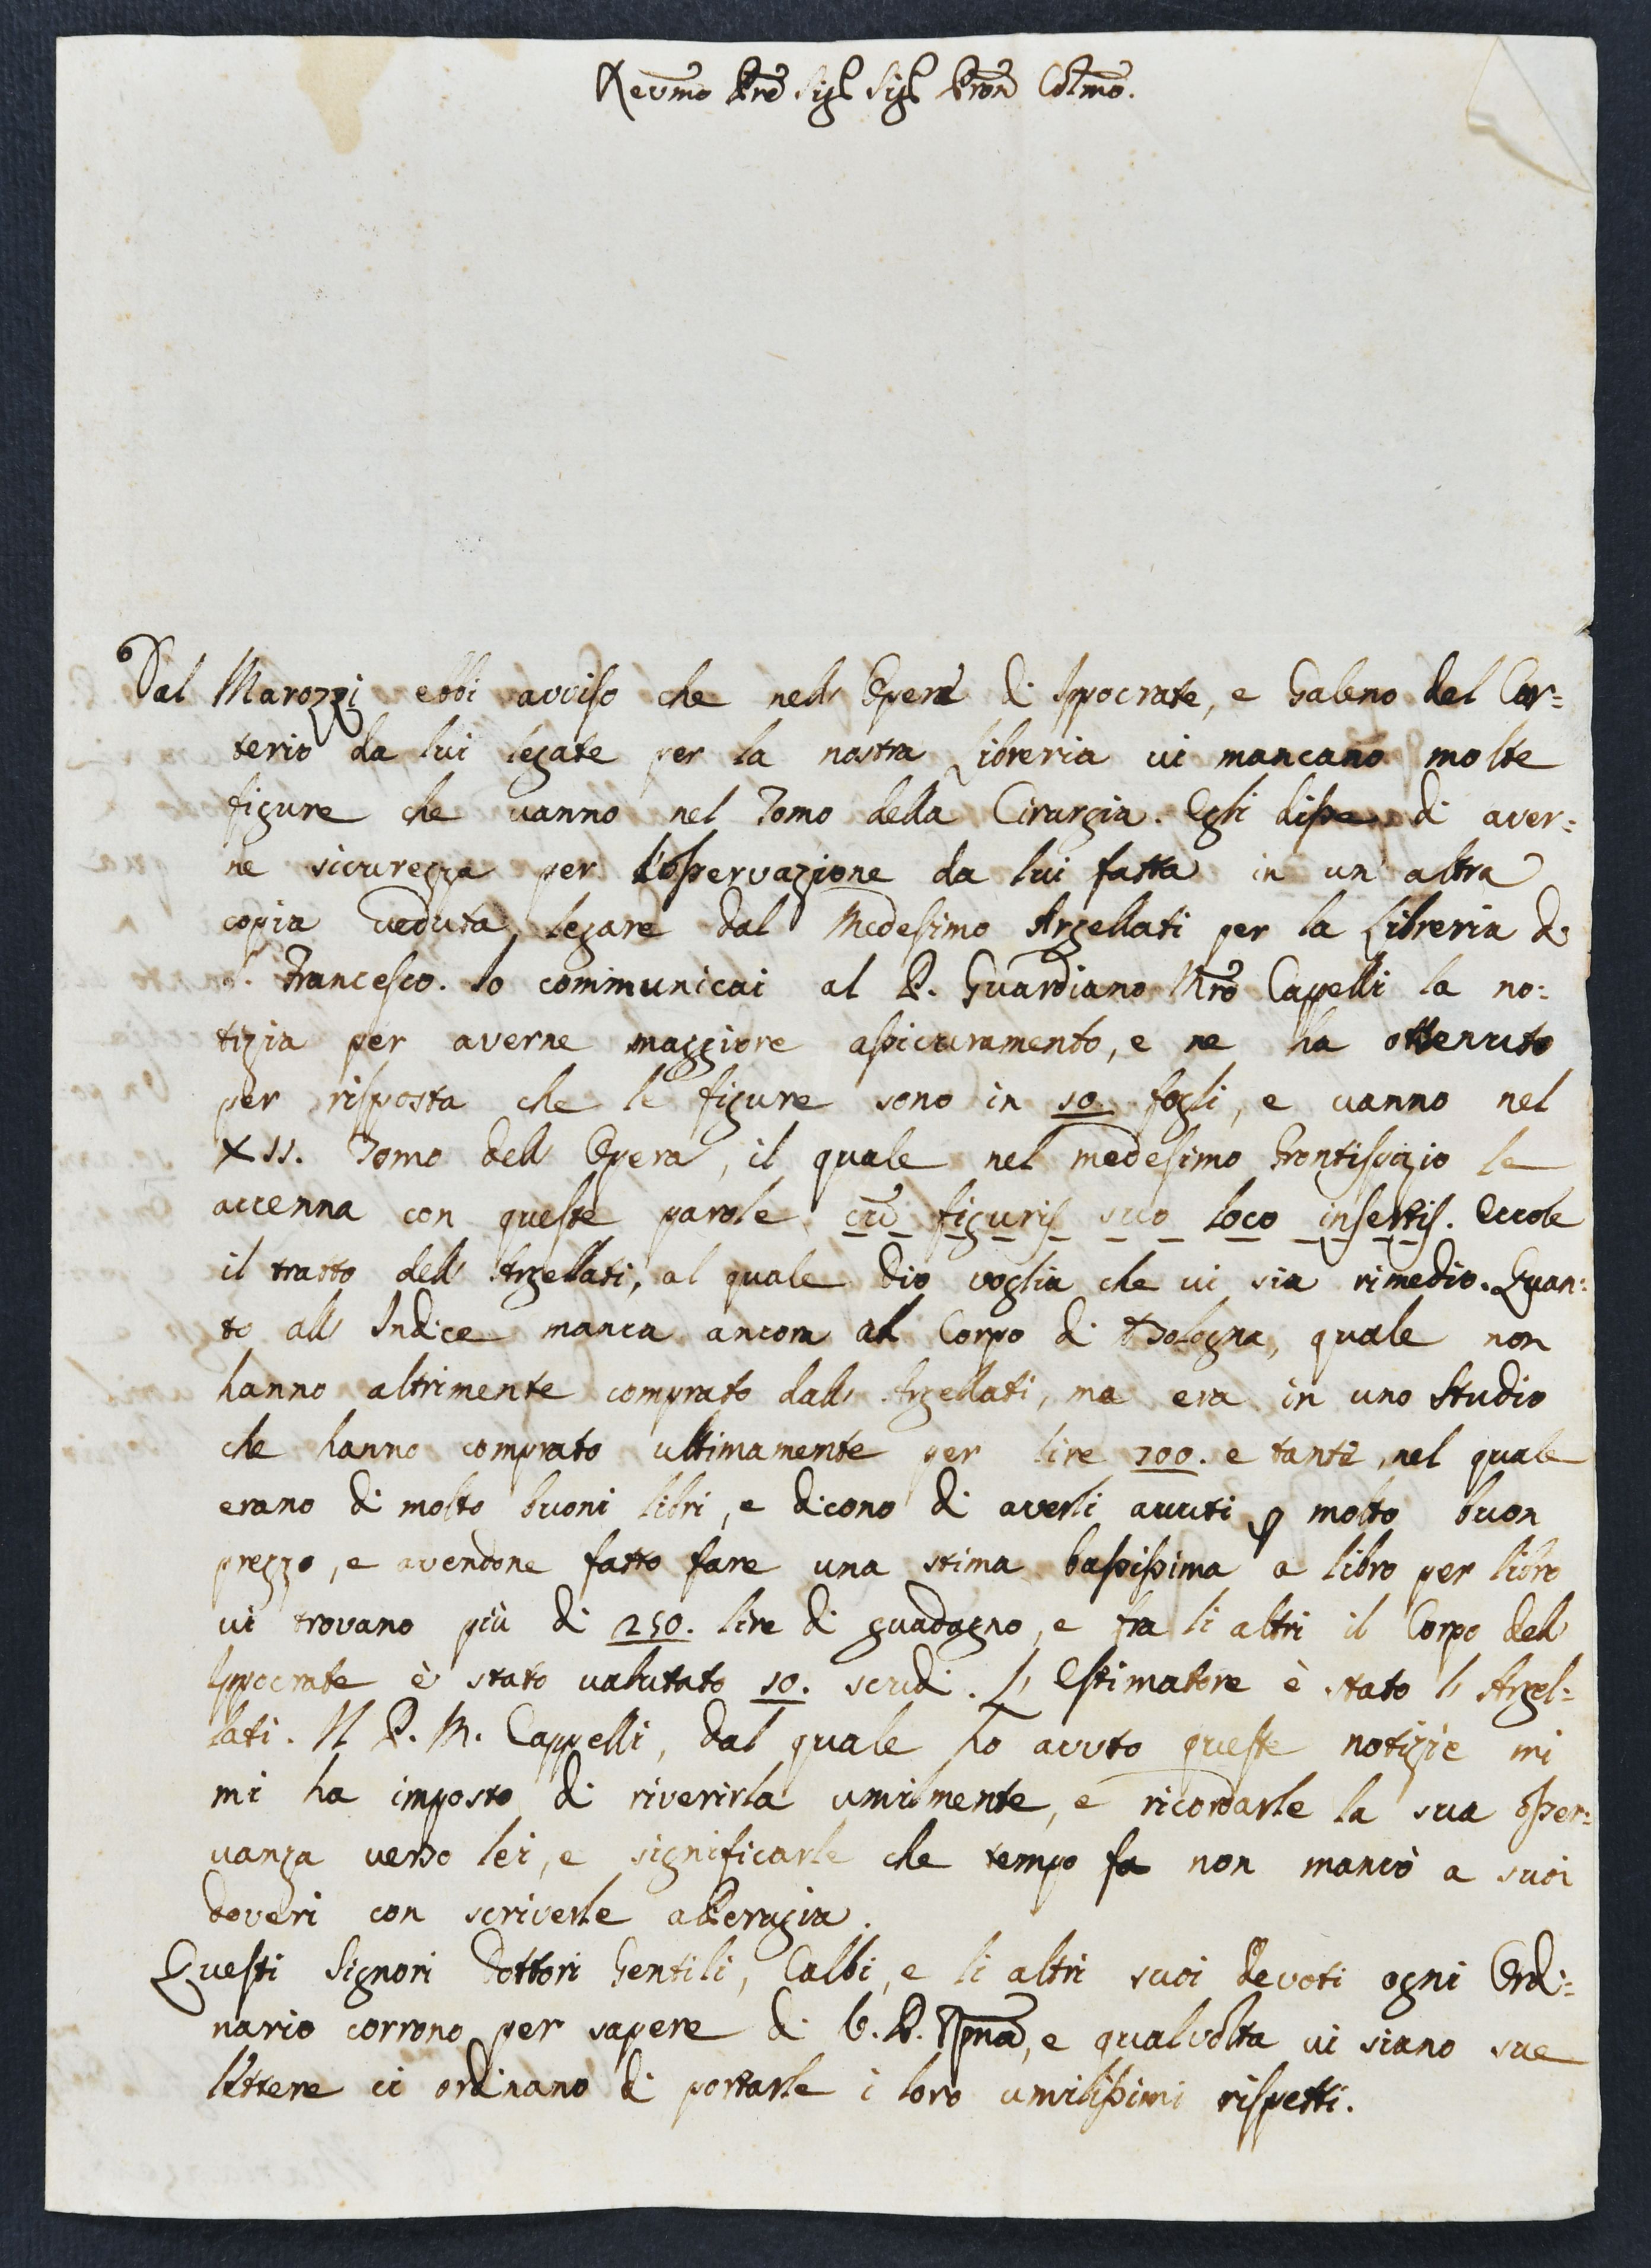 Reumo Pre Sigl Sigl Pron Colmo.
Dal Marozzi ebbi avviso che nell' Opera di Ippocrate, e Galeno del Car=
terio da lui legate per la nostra Libreria ui mancano molte
figure che uanno nel Tomo della Cirurgia. Egli disse di aver=
ne sicurezza per l'osservazione da lui fatta in un' altra
copia veduta legare dal Medesimo Argellati per la Libreria di
S. Francesco. Io communicai al P. Guardiano Mro Capelli la no=
tizia per averne maggiore assicuramento, e ne ha ottenuto
per risposta che le figure sono in 10. fogli, e uanno nel
XII. Tomo dell' Opera, il quale nel medesimo Frontispizio le
accenna con queste parole cũ figuris suo loco insertis. Eccole
il tratto dell' Argellati, al quale Dio voglia che ui sia rimedio. Quan=
to all' Indice manca ancora al Corpo di Bologna, quale non
hanno altrimente comprato dall' Argellati, ma era in uno Studio
che hanno comprato ultimamente per lire 700. e tante, nel quale
erano di molto buoni libri, e dicono di averli avuti p molto buon
prezzo, e avendone fatto fare una stima bassissima a libro per libro
ui trovano più di 250. lire di guadagno, e fra li altri il Corpo dell'
Ippocrate è stato valutato 10. scudi. L' Estimatore è stato l' Argel=
lati. Il P. M. Cappelli, dal quale ho avuto queste notizie mi
mi ha imposto di riverirla umilmente, e ricordarle la sua osser=
uanza verso lei, e significarle che tempo fa non mancò a suoi
doveri con scriverle a Perugia.
Questi Signori Dottori Gentili, Calbi, e li altri suoi devoti ogni Ordi=
nario corrono per sapere di V. P. Rma, e qualvolta ui siano sue
lettere ci ordinano di portarle i loro umilissimi rispetti.